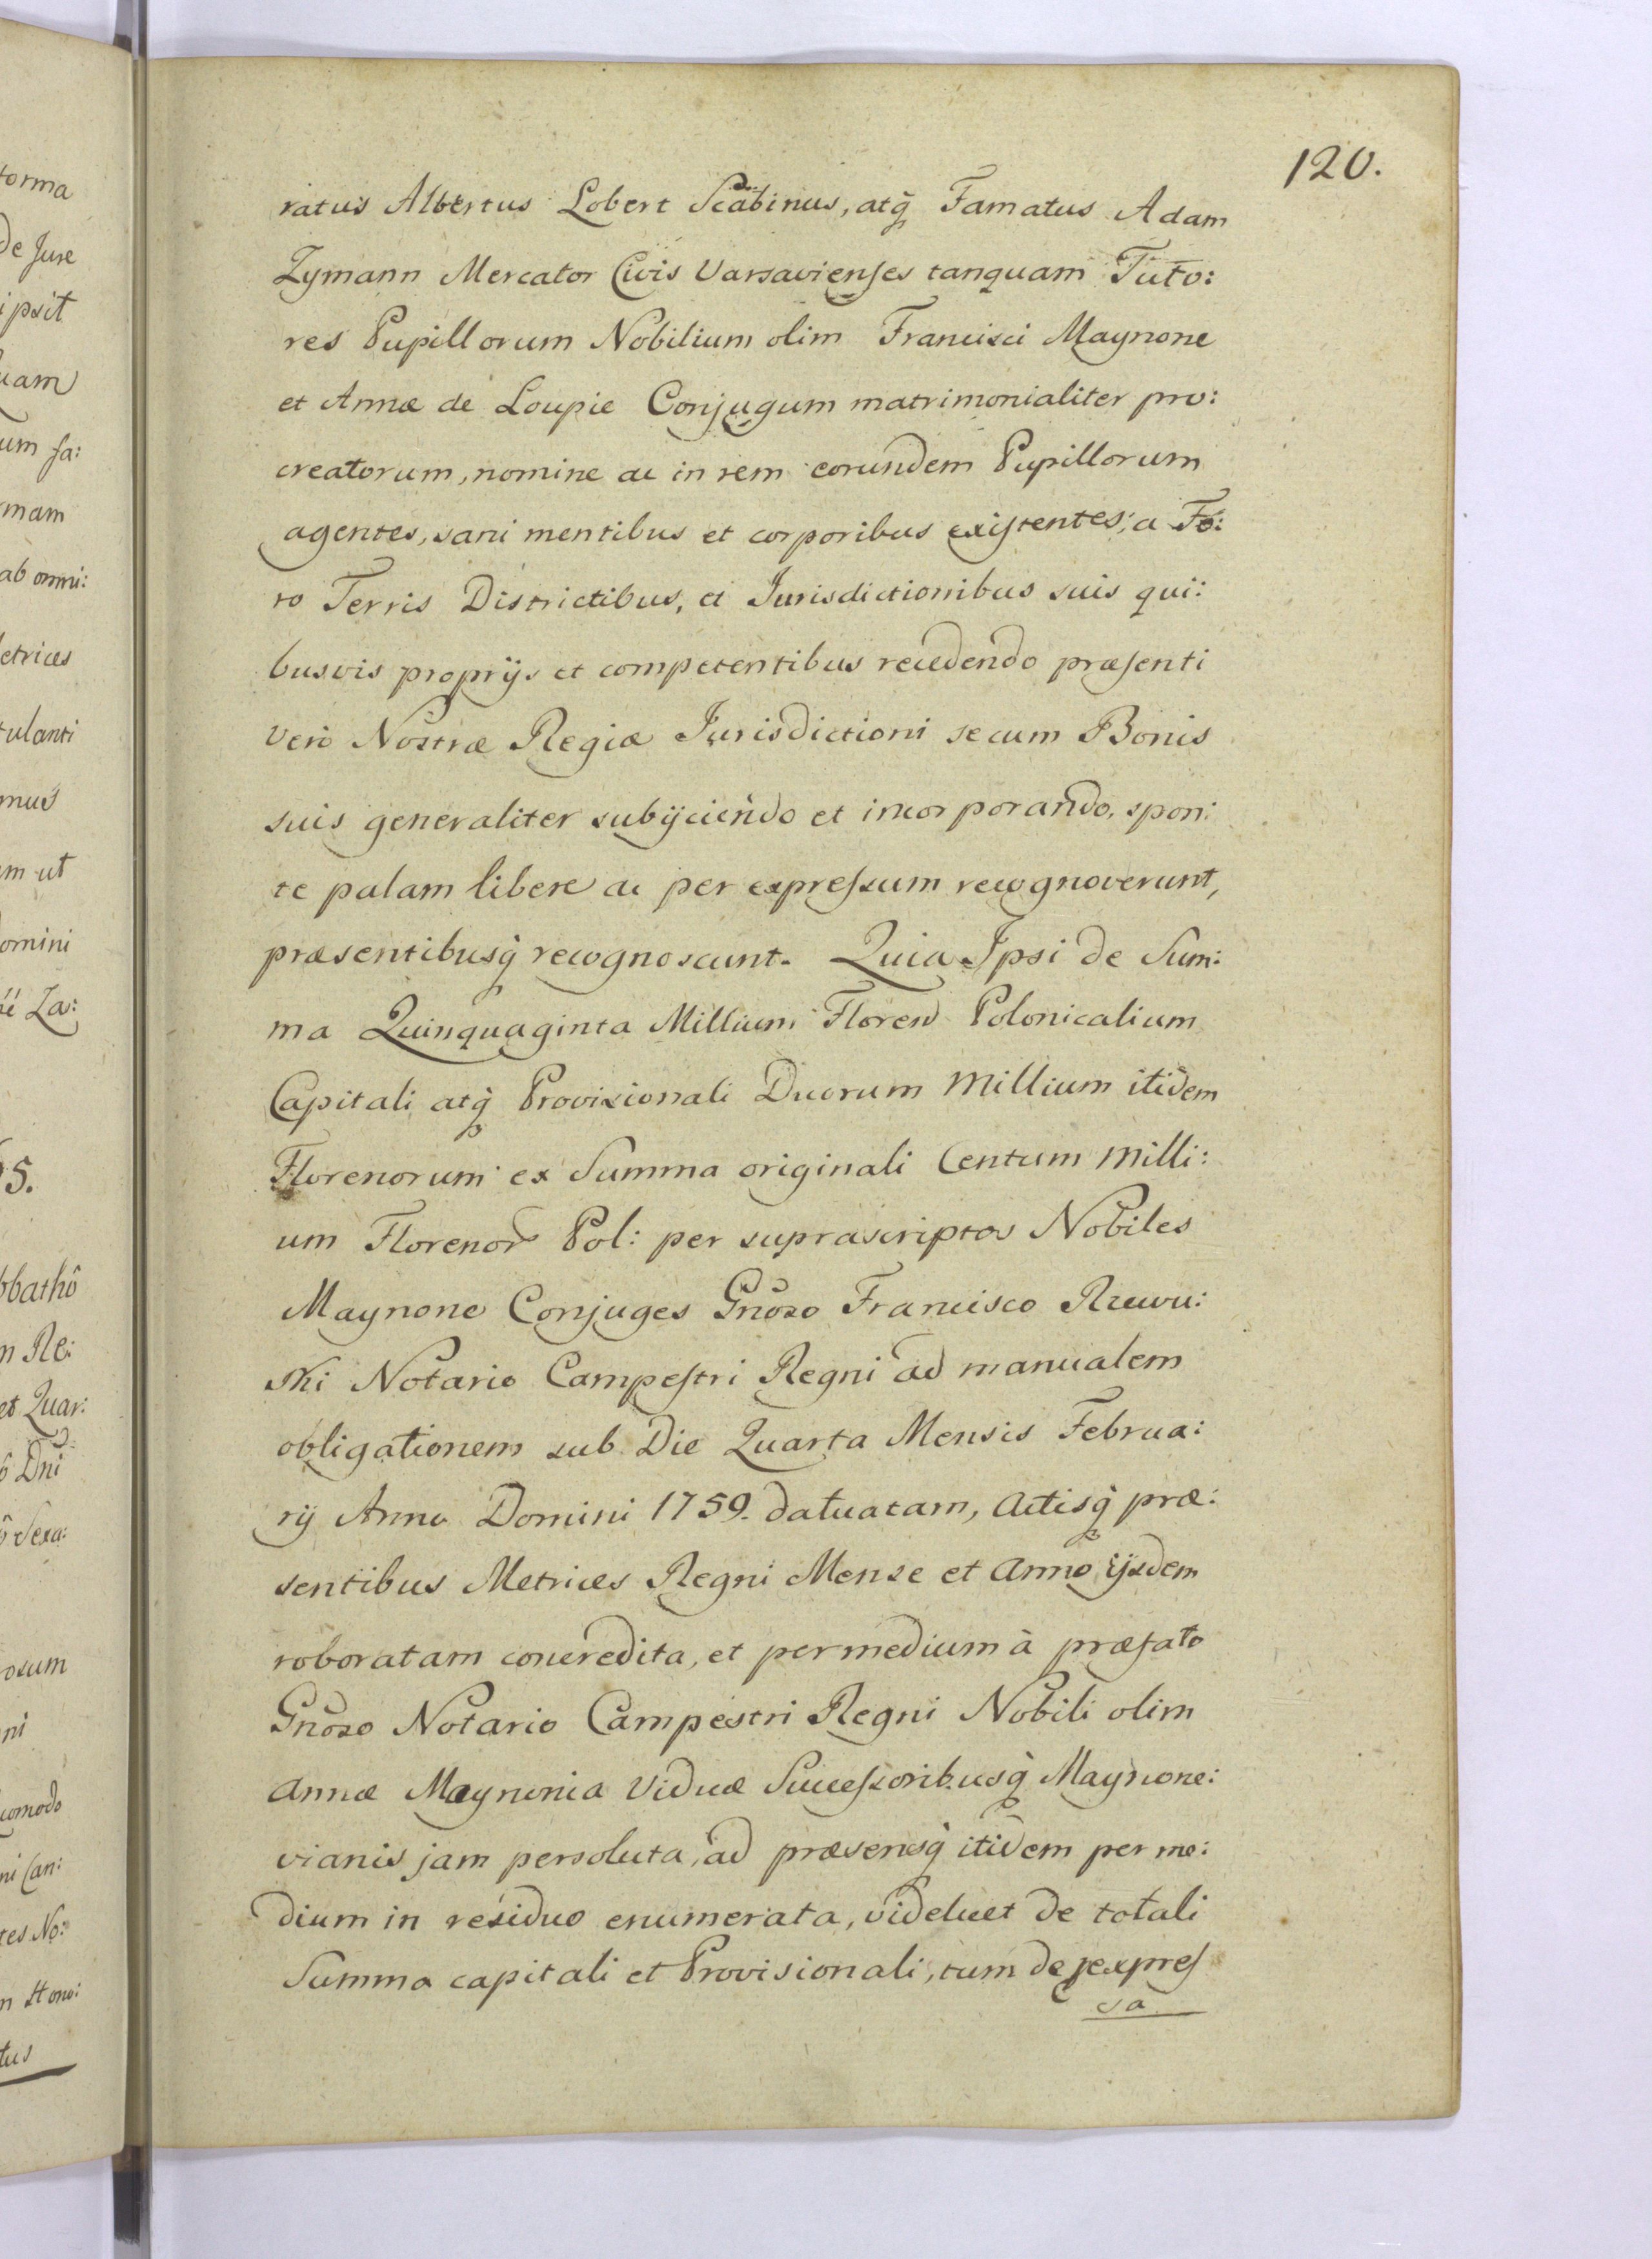 120.
ratus Albertus Lobert Scabinus, atq̃ Famatus Adam
Zymann Mercator Civis Varsavienses tanquam Tuto:
res Pupillorum Nobilium olim Francisci Maynone
et Annæ de Loupie Conjugum matrimonialiter pro:
creatorum, nomine ac in rem eorundem Pupillorum
agentes, sani mentibus et corporibus existentes, a Fo:
ro Terris Districtibus, et Jurisdictionibus suis qui:
busvis proprijs et competentibus recedendo præsenti
vero Nostræ Regiæ Jurisdictioni se cum Bonis
suis generaliter subijciendo et incorporando, spon:
te palam libere ac per expressum recognoverunt,
præsentibusq̃ recognoscunt. Quia Ipsi de Sum:
ma Quinquaginta Millium Floren Polonicalium
Capitali atq̃ Provisionali Duorum Millium itidem
Florenorum ex Summa originali Centum Milli:
um Florenor Pol: per suprascriptos Nobiles
Maynone Conjuges Gnoso Francisco Rzewu:
ski Notario Campestri Regni ad manualem
obligationem sub Die Quarta Mensis Februa:
rij Anno Domini 1759. datuatam, Actisq̃ præ:
sentibus Metrices Regni Mense et Anno ijsdem
roboratam concredita, et permedium à præfato
Gnoso Notario Campestri Regni Nobili olim
Annæ Maynonia Viduæ Successoribusq̃ Maynone:
vianis jam persoluta, ad præsensq̃ itidem per me:
dium in residuo enumerata, videlicet de totali
Summa capitali et Provisionali, tum de expres
sa

torma
de Jure
ipsit
uam
um fa:
mam
ab omni:
etrices
tulanti
mus
m ut
omini
Za:
5.
bbathô
n Re:
et Quar:
ô Dni
ô Sexa:
osum
ni
comodo
ni Can:
tes No:
n Hono:
tus